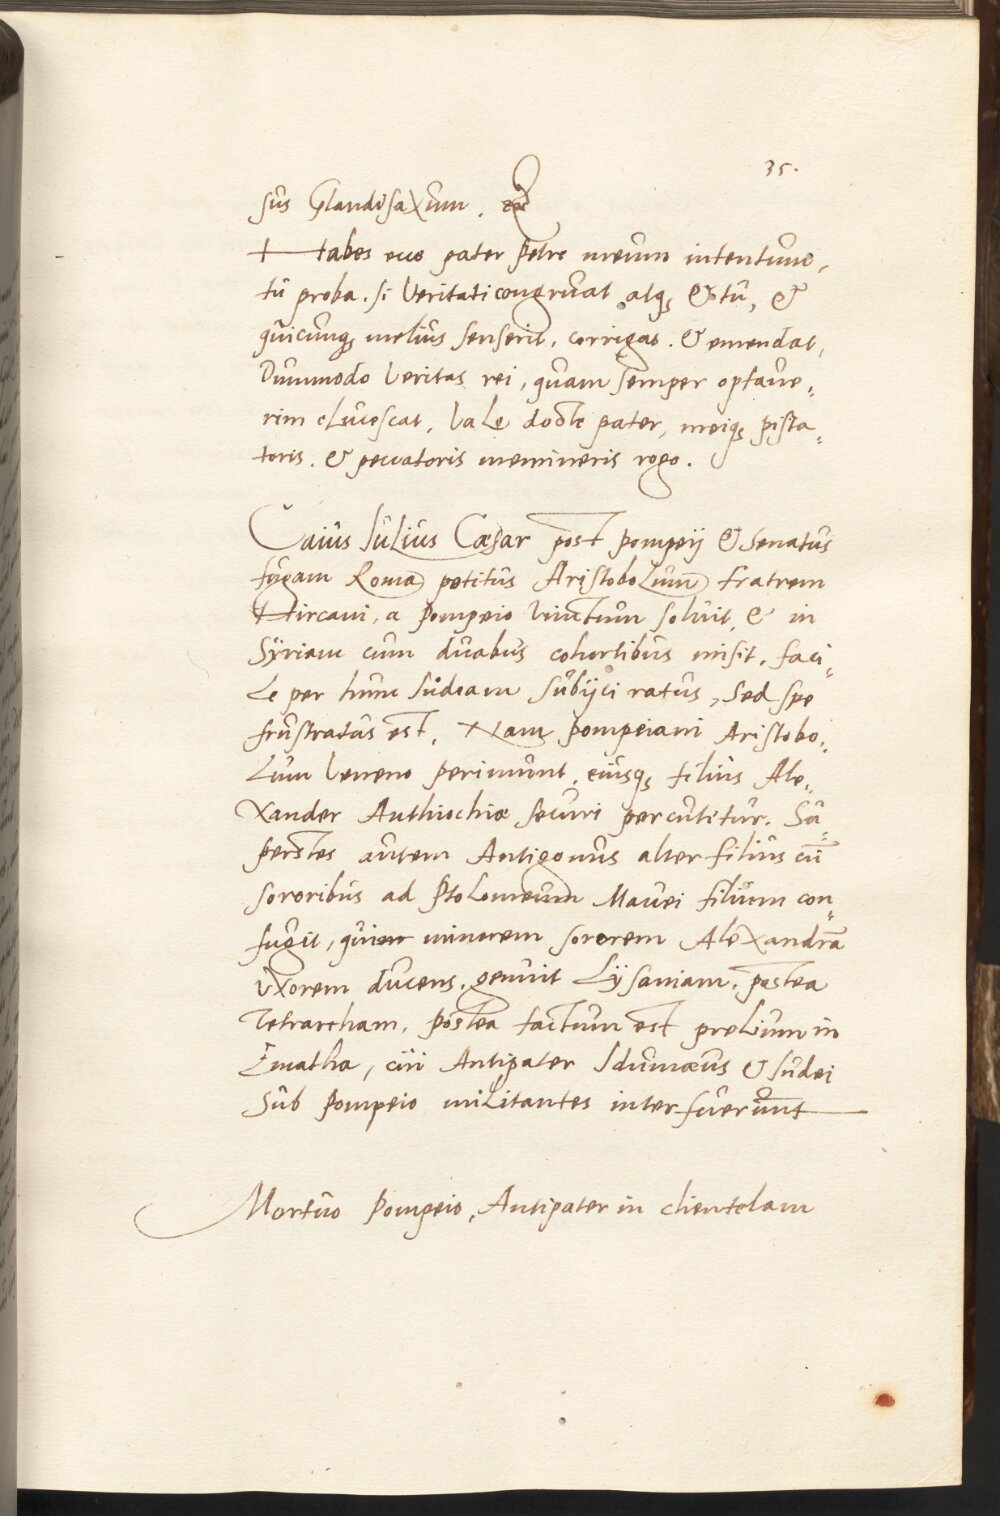 35.
sus Glandisaxum.
Habes ecce pater Petre meum intentum,
tu proba. si Veritati congruat, atq; & tu, &
quicunq; melius senserit, corrigat. & emendat,
Dummodo Veritas rei, quam semper optaue„
rim elucescat, Vale docte pater, meiq; pista„
toris. & peccatoris memineris rogo.
Caius Iulius Cæsar post Pompeij & Senatus
fugam Roma potitus Aristobolum fratrem
Hircani, a Pompeio Vinctum soluit, & in
Syriam cum duabus cohortibus misit. faci„
le per hunc Iudeam subijci ratus, Sed spe
frustratus est. Nam Pompeiani Aristobo„
lum Veneno perimunt, eiusq; filius Ale„
xander Anthiochiæ securi percutitur. Su„
perstes autem Antigonus alter filius cū
sororibus ad Ptolomeum Mauei filium con„
fugit, quiem minorem sororem Alexandrā
vxorem ducens, genuit Lysaniam, postea
Tetrarcham, postea factum est prelium in
Ematha, cui Antipater Idumæus & Iudei
Sub Pompeio militantes interfuerunt
Mortuo Pompeio, Antipater in clientelam